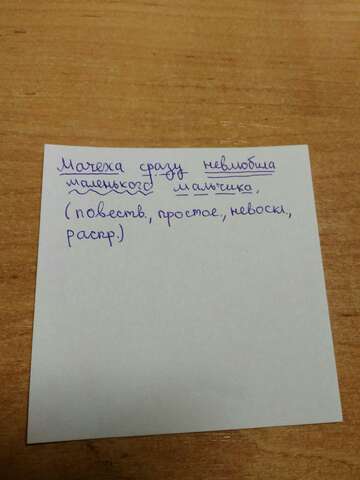 Мачеха сразу невлюбила
маленького мальчика.
(повеств., простое, невоскл.,
распр.)